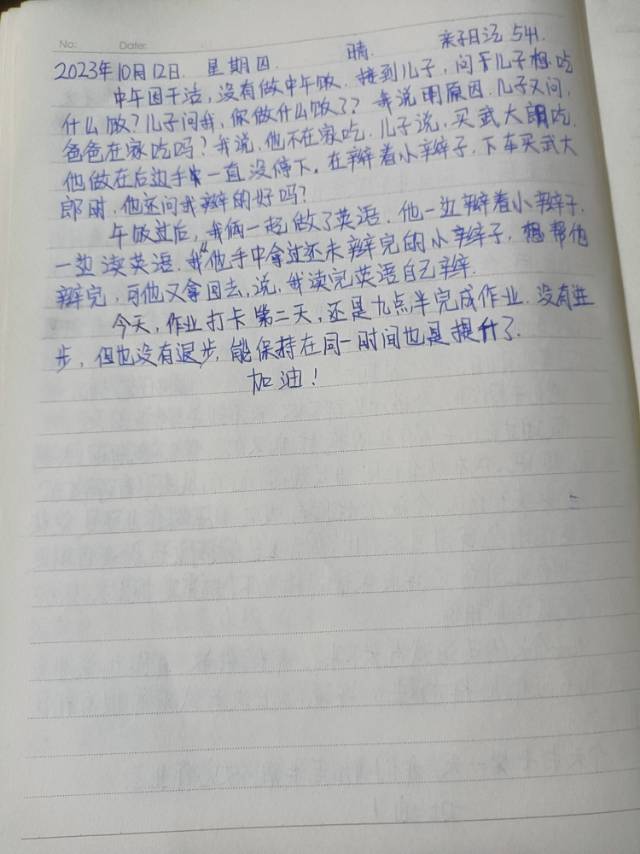 No: Date:
亲子日记 541.
2023年10月12日. 星期四. 晴.
中午因干活，没有做中午饭. 接到儿子，问于儿子想吃
什么饭？儿子问我，你做什么饭了？我说明原因. 儿子又问，
爸爸在家吃吗？我说，他不在家吃. 儿子说，买武大郎吃.
他做在后边手一直没停下. 在辩着小辫子. 下车买武大
郎时，他还问我辩的好吗？
午饭过后，我俩一起做了英语. 他一边辩着小辫子.
一边读英语. 我他手中拿过还未辩完的小辫子. 想帮他
辩完，可他又拿回去，说，我读完英语自己辩.
今天，作业打卡第二天，还是九点半完成作业. 没有进
步，但也没有退步，能保持在同一时间也是提升了.
加油！